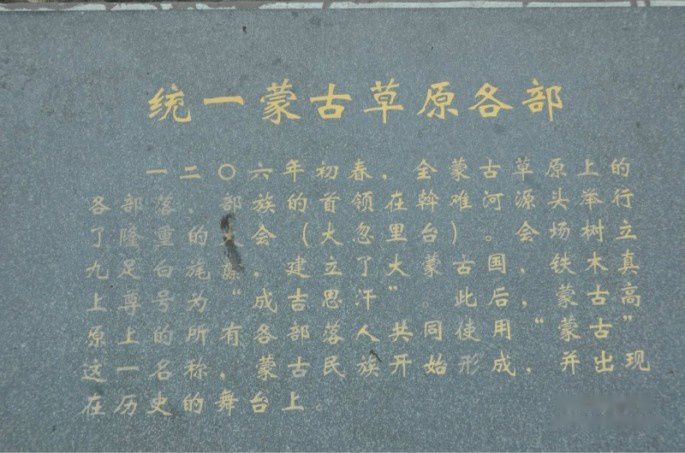 统一蒙古草原各部
一二〇六年初春，全蒙古草原上的
各部落、部族的首领在斡难河源头举行
了隆重的大会（大忽里台）。会场树立
九足白旄纛，建立了大蒙古国，铁木真
上尊号为“成吉思汗”。此后，蒙古高
原上的所有各部落人共同使用“蒙古”
这一名称，蒙古民族开始形成，并出现
在历史的舞台上。